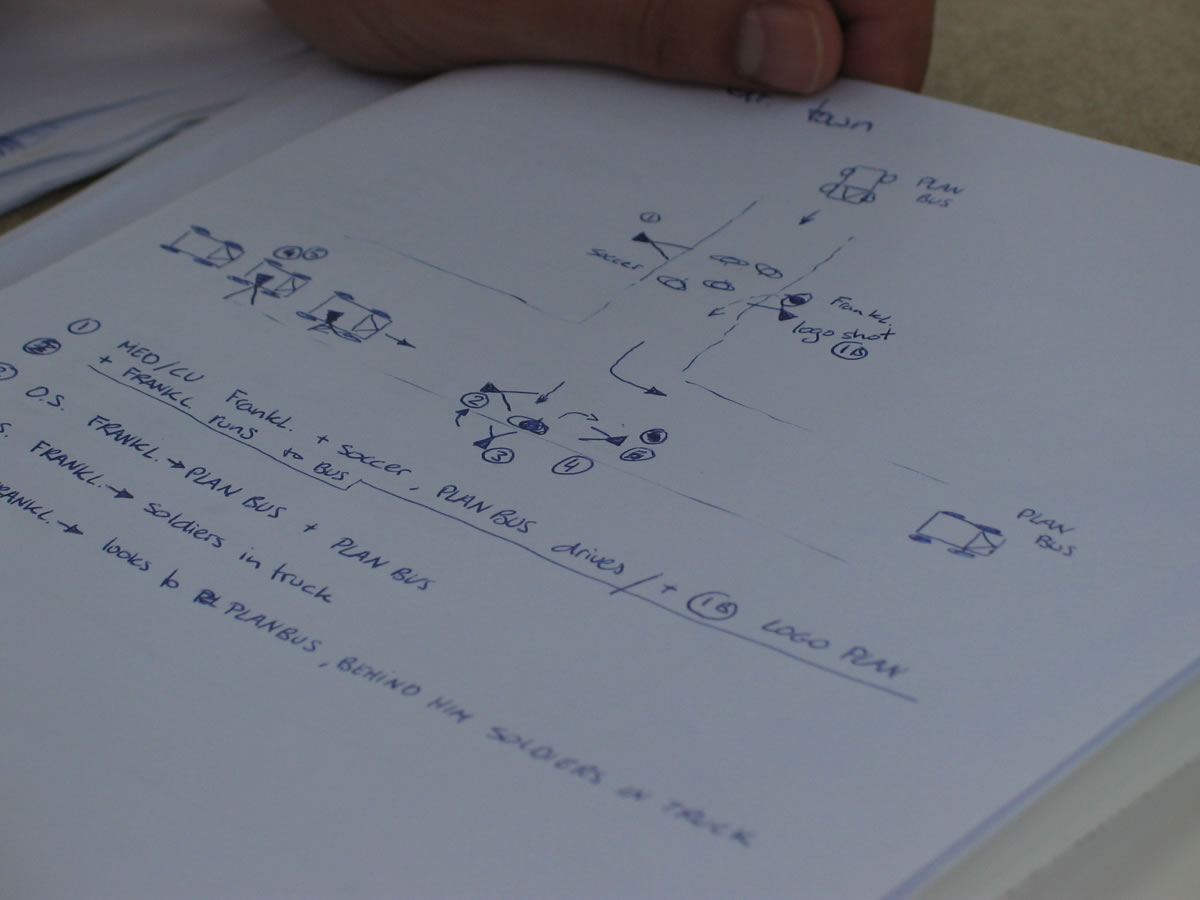 town
PLAN
BUS
①
soccer
Frankl.
logo shot
1B
④ ⑤
② ③ ④ ⑤
PLAN
BUS
① MED/CU Frankl. + soccer, PLAN BUS drives / + 1B LOGO PLAN
+ FRANKL runs to BUS
O.S. FRANKL. → PLAN BUS + PLAN BUS
S. FRANKL. → soldiers in truck
FRANKL. → looks to PLANBUS, BEHIND HIM SOLDIERS IN TRUCK